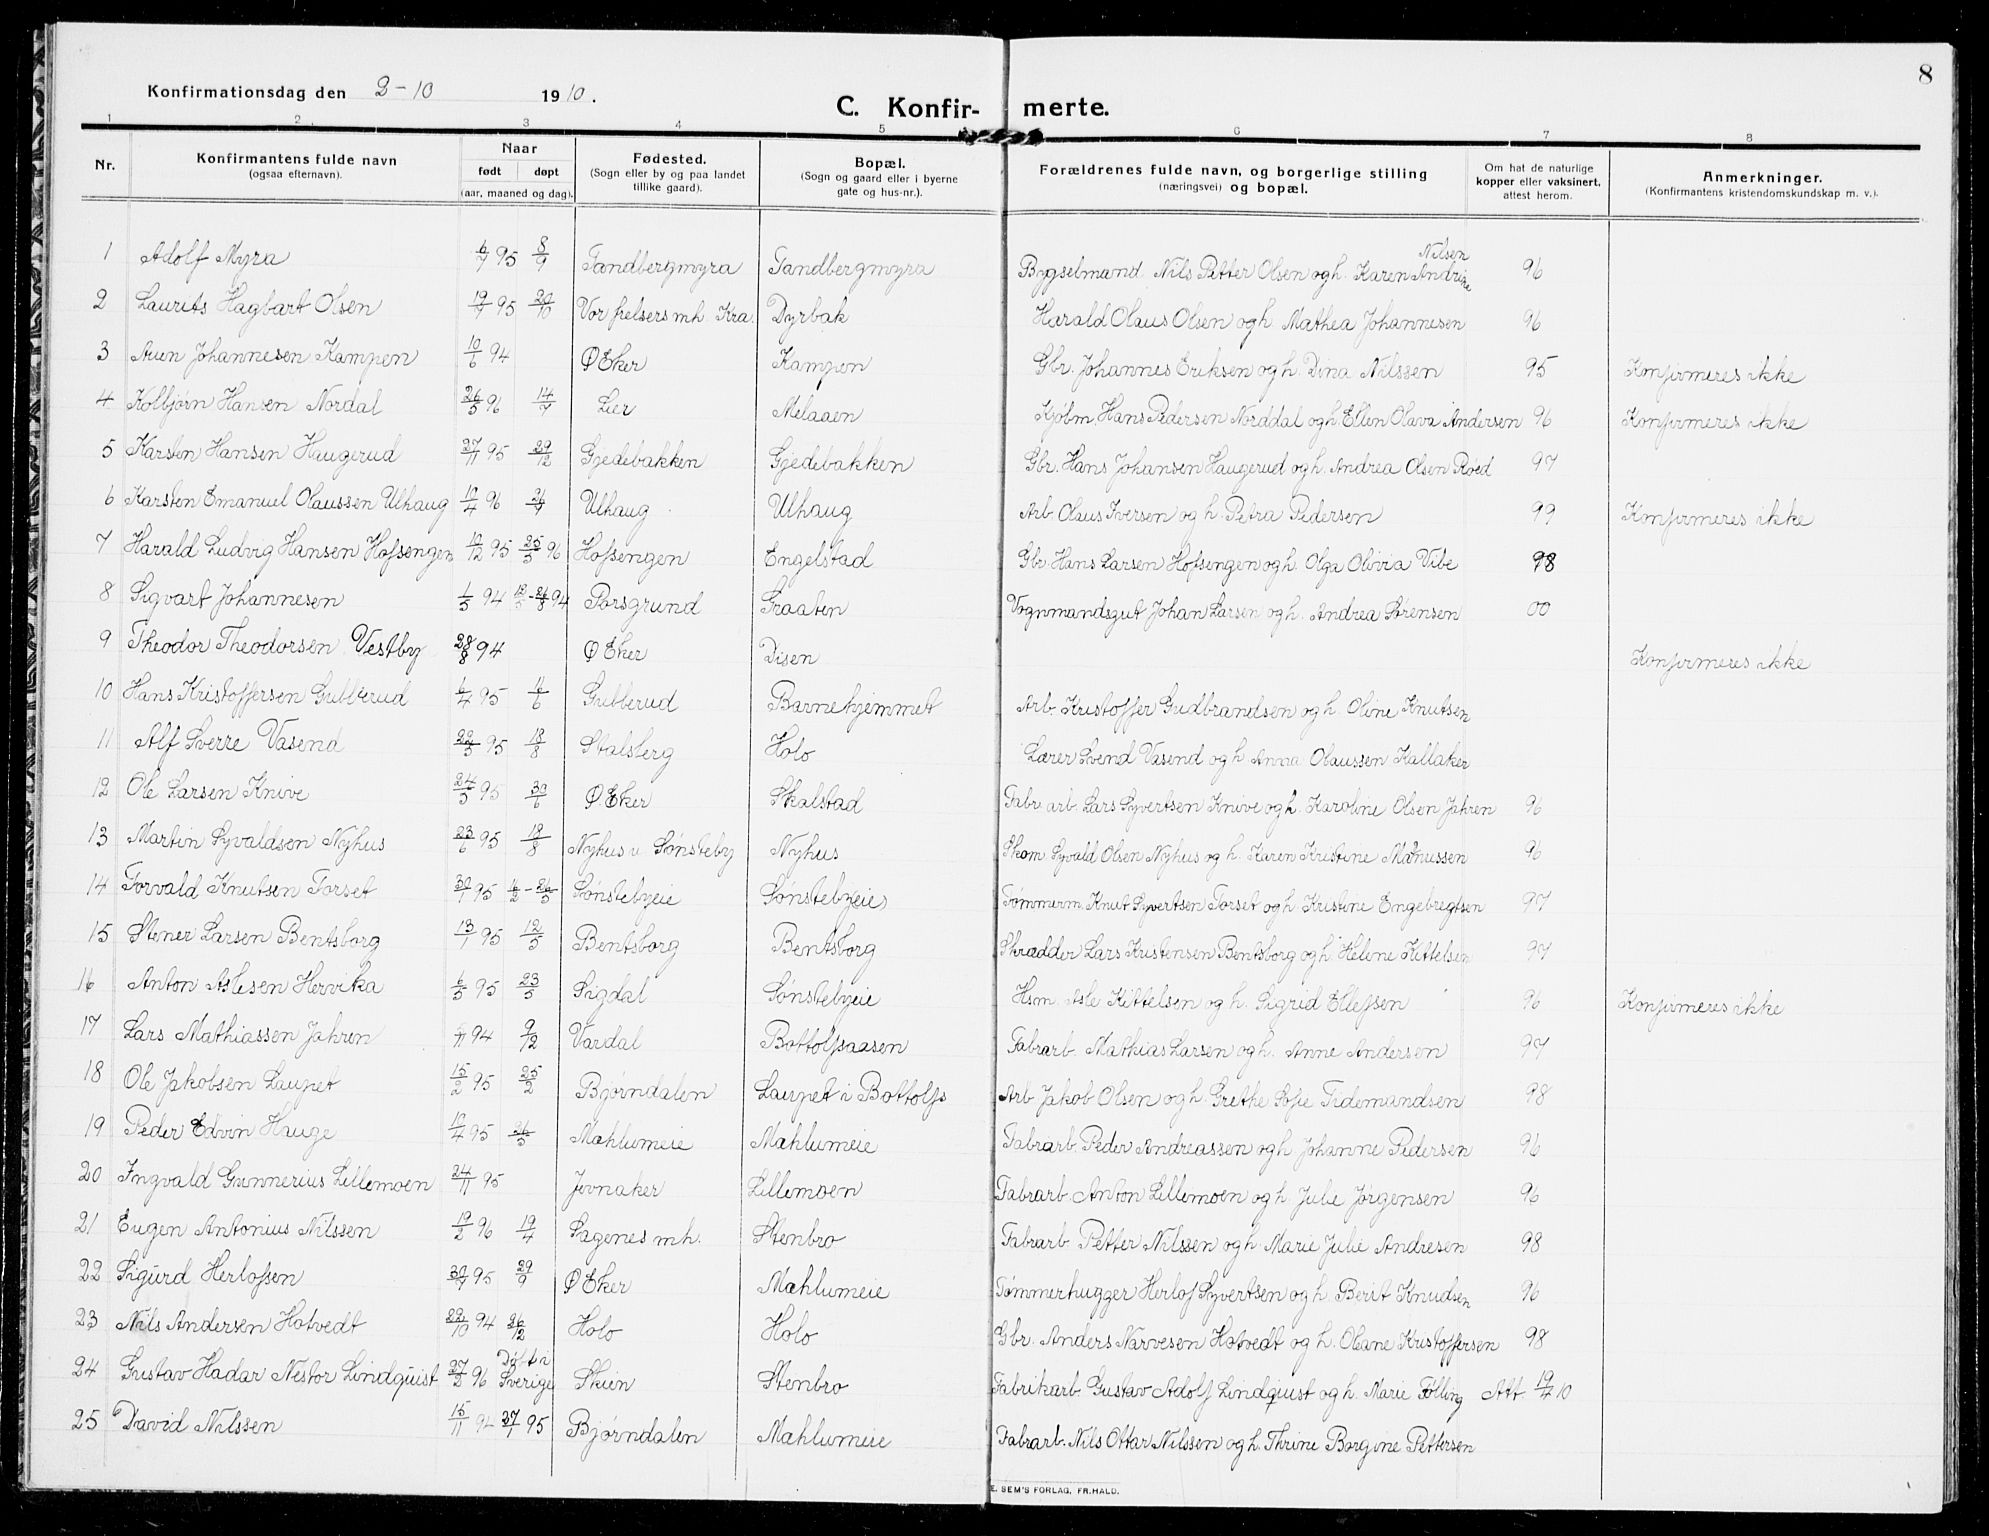 8
Konfirmationsdag den 2-10 1910.
C. Konfir- merte.
1 2 3 4 5 6 7 8
Nr. Konfirmantens fulde navn (ogsaa efternavn). Naar født døpt (aar, maaned og dag). Fødested. (Sogn eller by og paa landet tillike gaard). Bopæl. (Sogn og gaard eller i byerne gate og hus-nr.). Forældrenes fulde navn, og borgerlige stilling (næringsvei) og bopæl. Om hat de naturlige kopper eller vaksinert, attest herom. Anmerkninger. (Konfirmantens kristendomskundskap m. v.).
1 Adolf Myra 6/7 95 8/9 Tandbergmyra Tandbergmyra Bygselmand Nils Petter Olsen og h. Karen Andrine Nilsen 96
2 Laurits Hagbart Olsen 19/7 95 20/10 Vor frelsers mh. Kra. Dyrbak Harald Olaus Olsen og h. Mathea Johannesen 96
3 Auen Johannesen Kampen 10/6 94 Ø Eker Kampen Gbr. Johannes Eriksen og h. Dina Nilssen 95 Konfirmeres ikke
4 Kolbjørn Hansen Nordal 26/5 96 14/7 Lier Melaaen Kjøbm. Hans Pedersen Norddal og h. Ellen Olava Andersen 96 Konfirmeres ikke
5 Karsten Hansen Haugerud 27/11 95 29/12 Gjedebakken Gjedebakken Gbr. Hans Johansen Haugerud og h. Andrea Olsen Røed 97
6 Karsten Emanuel Olaussen Ulhaug 19/4 96 26/7 Ulhaug Ulhaug Arb. Olaus Iversen og h. Petra Pedersen 99 Konfirmeres ikke
7 Harald Ludvig Hansen Hofsengen 10/12 95 25/5 96 Hofsengen Engelstad Gbr. Hans Larsen Hofsengen og h. Olga Olivia Vibe 98
8 Sigvart Johannesen 1/5 94 13/5-26/8 94 Porsgrund Graaten Vognmandsgut Johan Larsen og h. Andrea Sørensen 00
9 Theodor Theodorsen Vestby 28/8 94 Ø Eker Disen Konfirmeres ikke
10 Hans Kristoffersen Gubberud 6/4 95 11/6 Gubberud Barnehjemmet Arb. Kristoffer Gudbrandsen og h. Oline Knutsen
11 Alf Sverre Vasend 22/5 95 18/8 Stalsberg Holo Lærer Svend Vasend og h Anna Olaussen Kallaker
12 Ole Larsen Knive 24/5 95 30/6 Ø. Eker Skalstad Fabr. arb. Lars Syvertsen Knive og h. Karoline Olsen Jahren 96
13 Martin Syvaldsen Nyhus 23/6 95 18/8 Nyhus u. Sønsteby Nyhus Skom. Syvald Olsen Nyhus og h. Karen Kristine Magnussen 96
14 Torvald Knutsen Torset 30/1 95 6/2-26/5 Sønstebyeie Sønstebyeie Tømmerm. Knut Syvertsen Torset og h. Kristine Engebregtsen 97
15 Stener Larsen Bentsborg 13/1 95 12/5 Bentsborg Bentsborg Skrædder Lars Kristensen Bentsborg og h. Helene Kittelsen 97
16 Anton Aslesen Hervika 6/5 95 23/5 Sigdal Sønstebyeie Hsm. Asle Kittelsen og h. Sigrid Ellefsen 96 Konfirmeres ikke
17 Lars Mathiassen Jahren 94 9/12 Vardal Bottolfsaasen Fabrarb. Mathias Larsen og h. Anne Andersen 97
18 Ole Jakobsen Laupet 15/2 95 25/2 Bjørndalen Laupet i Bottolfs Arb Jakob Olsen og h. Grethe Sofie Tidemandsen 98
19 Peder Edvin Hauge 19/4 95 26/5 Mæhlumeie Mæhlumeie Fabrarb. Peder Andreassen og h Johanne Pedersen 96
20 Ingvald Gunnerius Lillemoen 24/11 95 Jevnaker Lillemoen Fabrarb. Anton Lillemoen og h. Julie Jørgensen 96
21 Eugen Antonius Nilssen 19/2 96 19/4 Sagenes mh. Stenbro Fabrarb. Petter Nilssen og h. Marie Julie Andresen 98
22 Sigurd Herlofsen 30/7 95 29/9 Ø Eker Mæhlumeie Tømmerhugger Herlof Syvertsen og h. Berit Knudsen 96
23 Nils Andersen Hotvedt 22/10 94 26/12 Holo Holo Gbr. Anders Narvesen Hotvedt og h. Oleane Kristoffersen 98
24 Gustav Hadar Nestor Lindquist 27/2 96 Døbt i Sverige Skien Stenbro Fabrikarb. Gustav Adolf Lindquist og h. Marie Følling Att. 19/4 10
25 David Nilssen 15/11 94 27/1 95 Bjørndalen Mæhlumeie Fabrarb. Nils Ottar Nilssen og h. Thrine Borgine Pettersen
E. SEM'S FORLAG, FR.HALD.